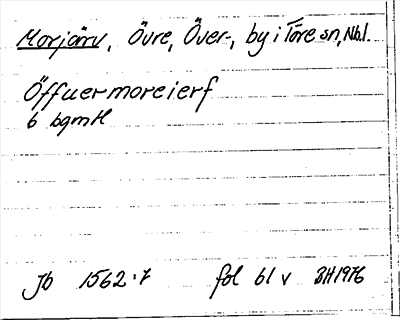 Morjärv, Övre, Över-, by i Töre sn, Nbl.
Öffuermoreierf
6 bgmtl
Jb 1562:7 fol 61 v BH1976